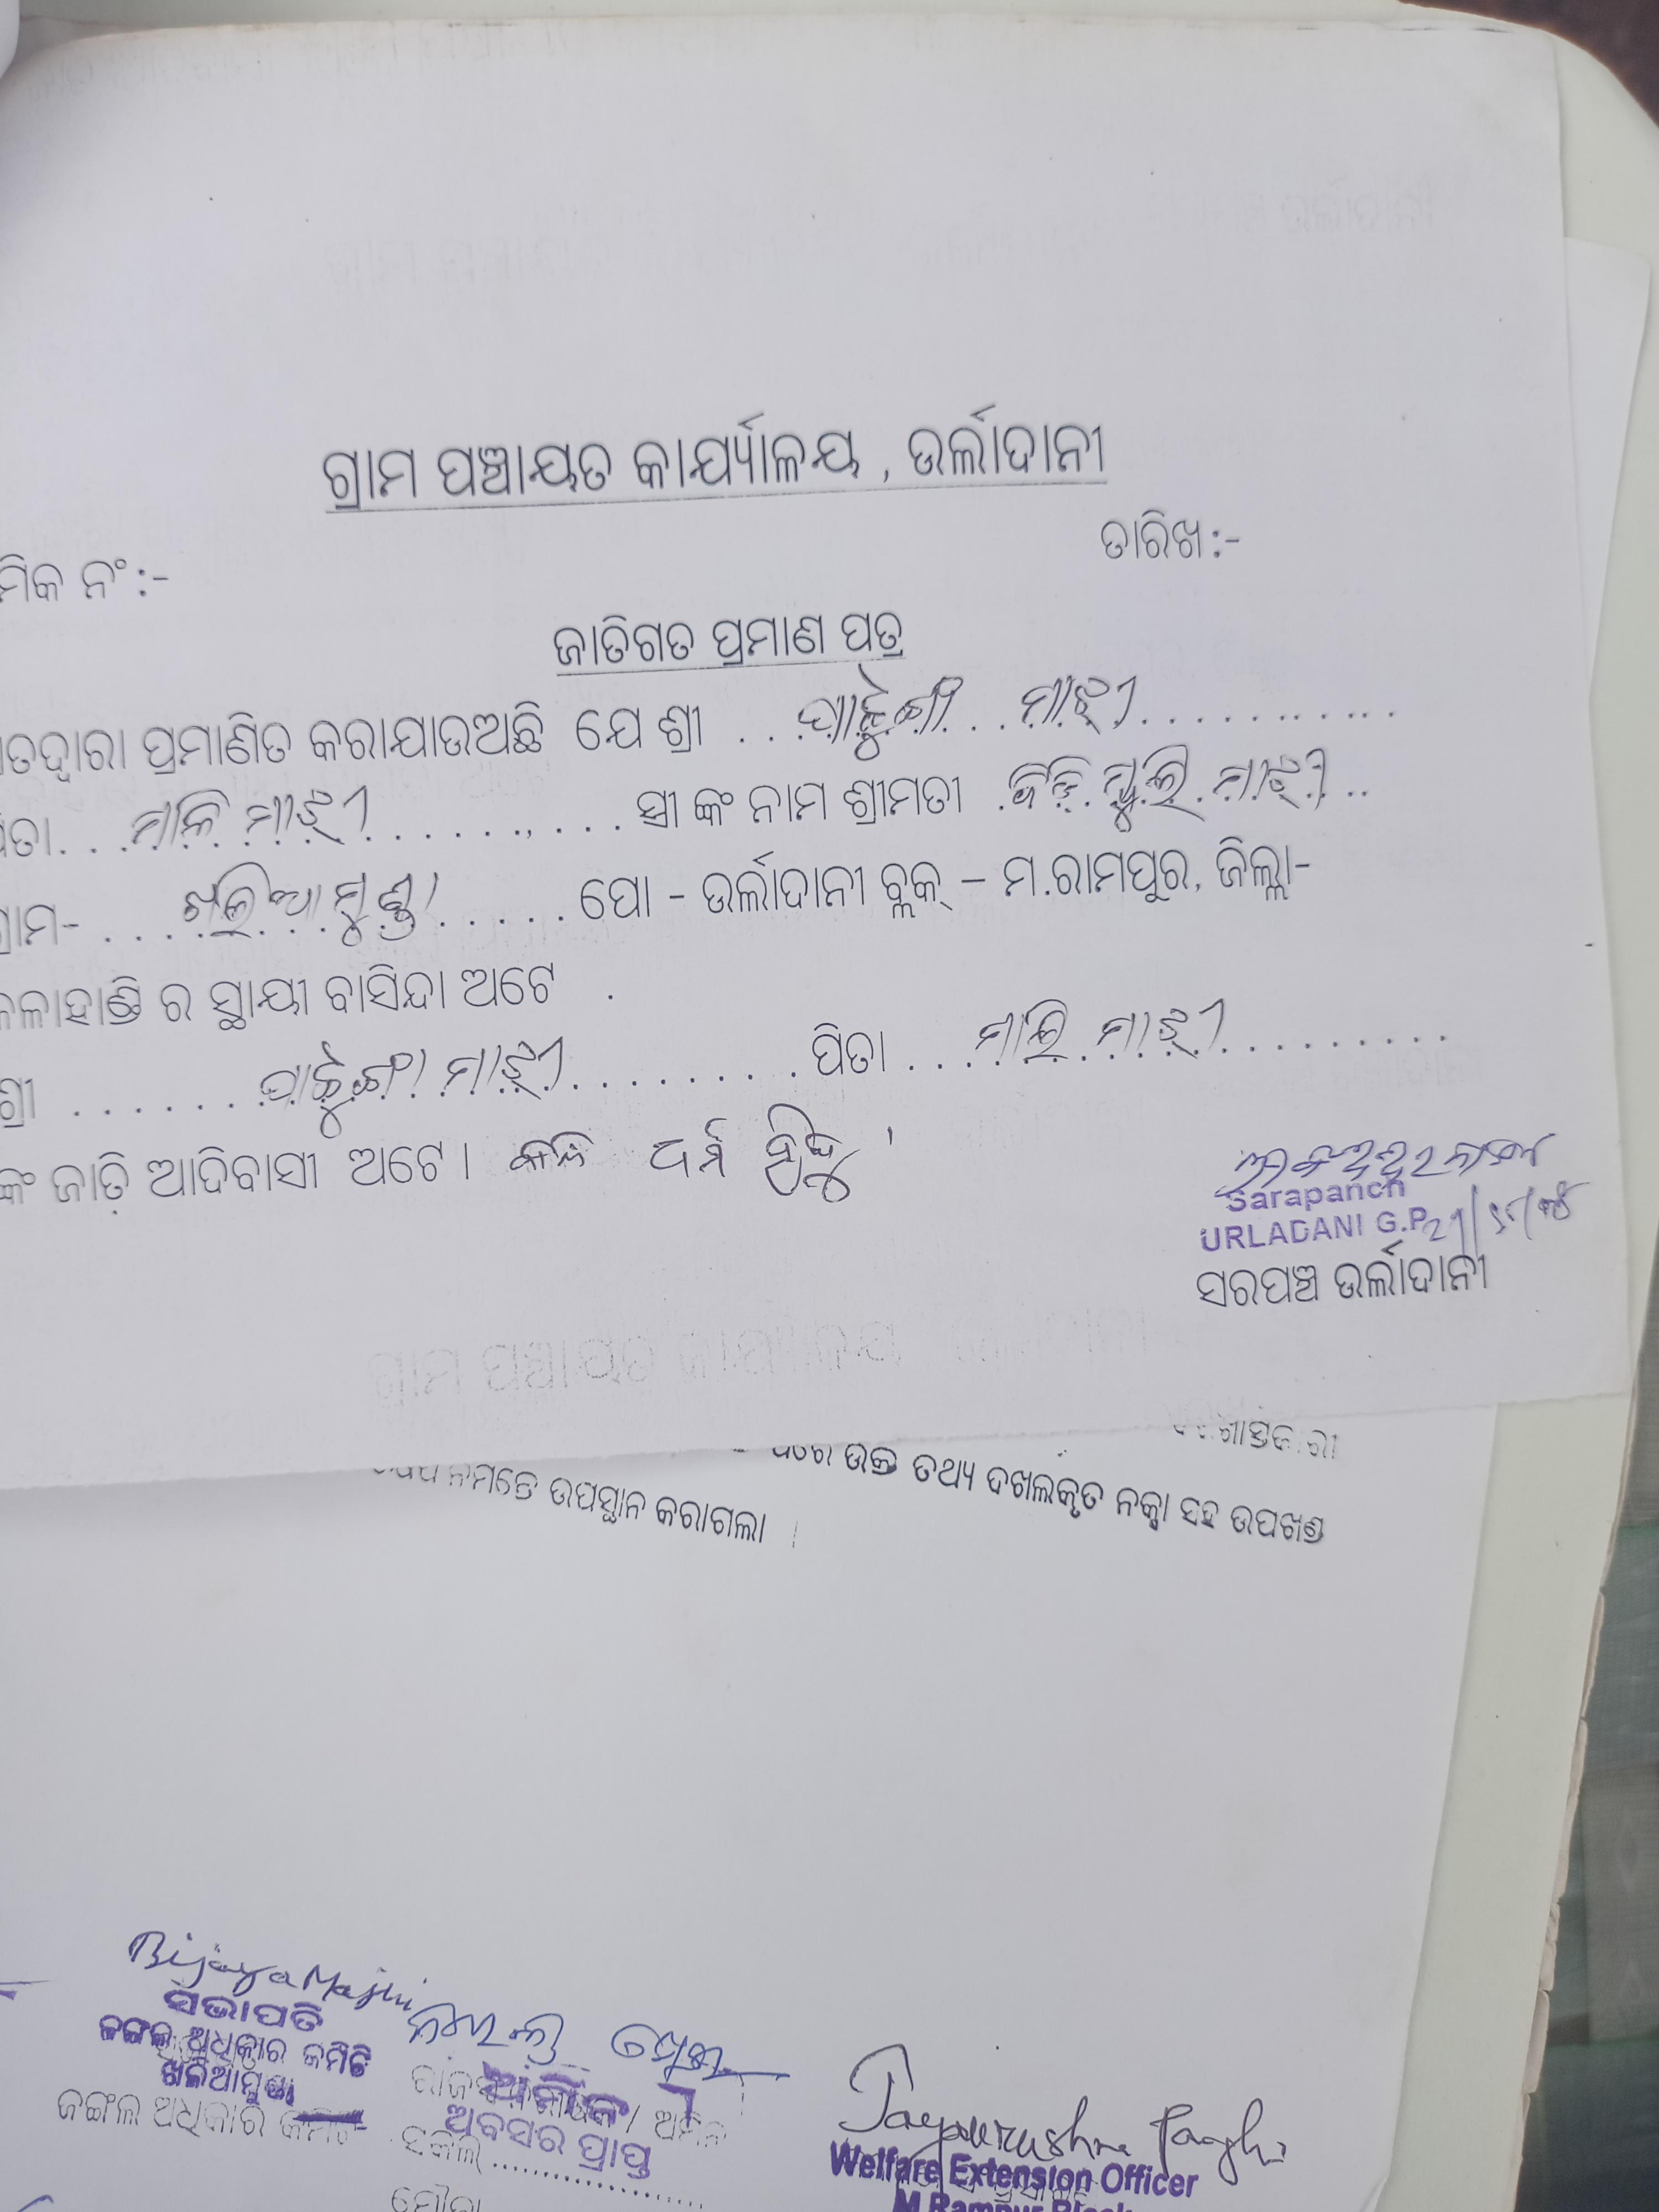 ଗ୍ରାମ ପଞ୍ଚାୟତ କାର୍ଯ୍ୟାଳୟ , ଉର୍ଲାଦାନୀ
ମିକ ନଂ :-
ତାରିଖ :-
ଜାତିଗତ ପ୍ରମାଣ ପତ୍ର
ତଦ୍ୱାରା ପ୍ରମାଣିତ କରାଯାଉଅଛି ଯେ ଶ୍ରୀ ... ମାଝୀ ............
ତା... ମାଳି ମାଝୀ .......... ସ୍ତ୍ରୀ ଙ୍କ ନାମ ଶ୍ରୀମତୀ . ମାଝୀ ..
ଗ୍ରାମ- .... ଖଲିଆମୁଣ୍ଡା ..... ପୋ - ଉର୍ଲାଦାନୀ ବ୍ଲକ୍ – ମ.ରାମପୁର, ଜିଲ୍ଲା-
ଳାହାଣ୍ଡି ର ସ୍ଥାୟୀ ବାସିନ୍ଦା ଅଟେ .
ଶ୍ରୀ ....... ମାଝୀ ......... ପିତା ... ମାଝୀ ..........
ଙ୍କ ଜାତି ଆଦିବାସୀ ଅଟେ । ଧର୍ମ ହିନ୍ଦୁ
Sarapanch
URLADANI G.P
ସରପଞ୍ଚ ଉର୍ଲାଦାନୀ
ଉକ୍ତ ତଥ୍ୟ ଦଖଲକୃତ ନକ୍ସା ସହ ଉପଖଣ୍ଡ
ଉପସ୍ଥାନ କରାଗଲା ।
Bijaya Majhi
ସଭାପତି
ଜଙ୍ଗଲ ଅଧିକାର କମିଟି
ଖଲିଆମୁଣ୍ଡା
ଜଙ୍ଗଲ ଅଧିକାର କମିଟି
ଅମିନ
ଅବସର ପ୍ରାପ୍ତ
ସର୍କଲ ..............
ମୌଜା
Welfare Extension Officer
M.Rampur Block